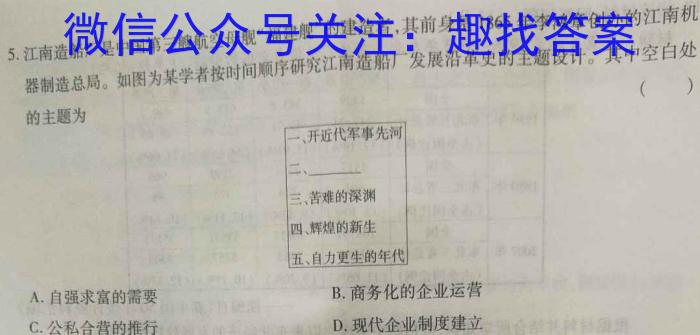 微信公众号关注：趣找答案
5.江南造船厂是中国第三艘航空母舰"福建舰"的建造者，其前身是1865年李鸿章创办的江南机
器制造总局。如图为某学者按时间顺序研究江南造船厂发展沿革史的主题设计。其中空白处
的主题为 （ ）
一、开近代军事先河
二、______
三、苦难的深渊
四、辉煌的新生
五、自力更生的年代
A. 自强求富的需要 B. 商务化的企业运营
C. 公私合营的推行 D. 现代企业制度建立